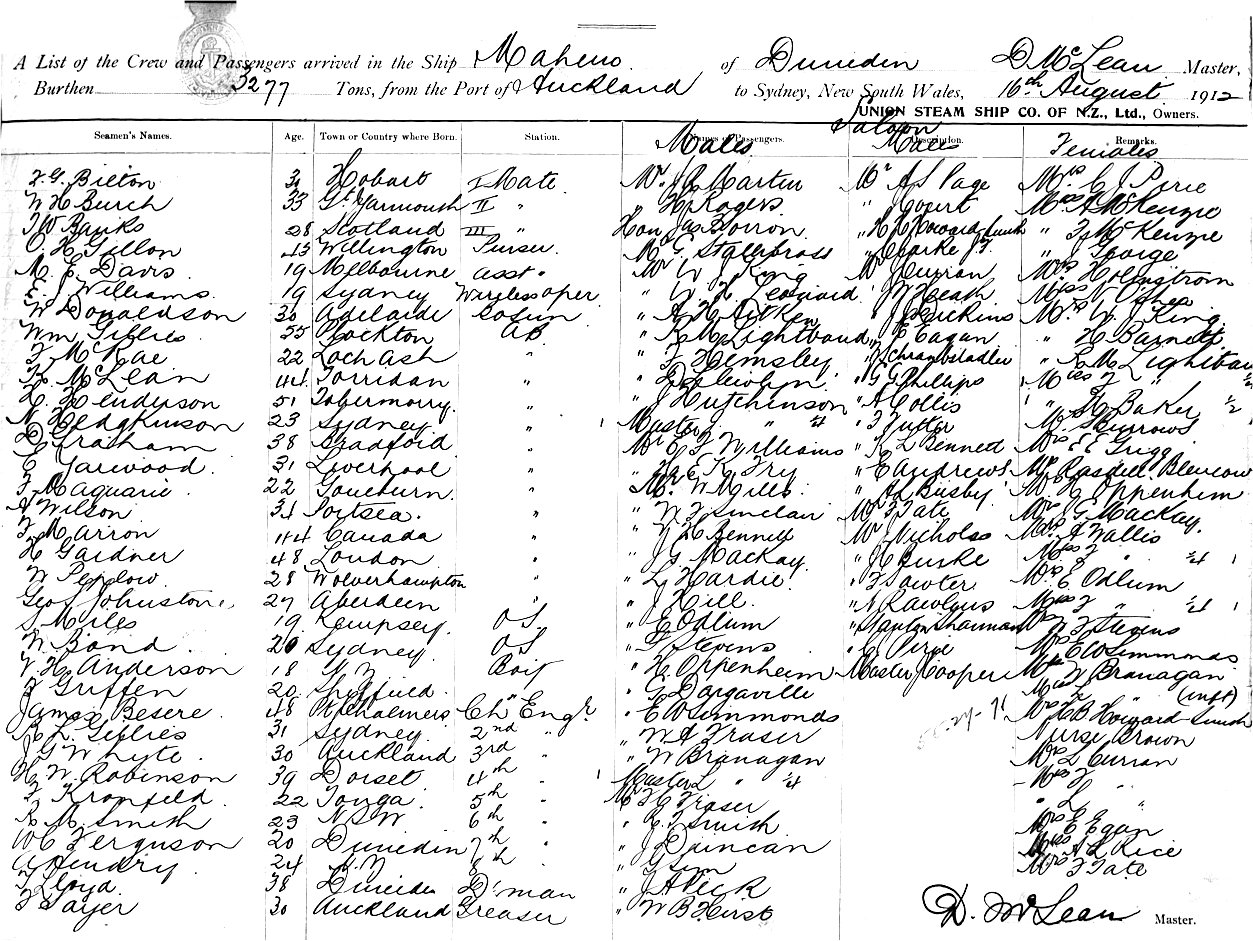 A List of the Crew and Passengers arrived in the Ship Maheno of Dunedin D McLean Master,
Burthen 3277 Tons, from the Port of Auckland to Sydney, New South Wales, 16th August 1912
UNION STEAM SHIP CO. OF N.Z., Ltd., Owners.
Saloon
Seamen's Names. Age. Town or Country where Born. Station. Names of Passengers. Description. Remarks.
Males Males Females
F. G. Bilton Hobart I Mate Mr. J R Martin Mr A S Page Mrs C J Pirie
W H Burch 33 Gt Yarmouth II " " H Rogers " Court Mrs A McKenzie
Banks 28 Scotland III " Hon Jas " " McKenzie
C. H. Gillon 45 Wellington Purser Mr G Stallybrass " Clarke J. F. " J
M. E. Davis 19 Melbourne asst " Mr W J King Mr Curran Mrs Holmstrom
E. J. Williams 19 Sydney Wireless oper. " W H Leonard " J W Heath Miss V
W Donaldson 30 Adelaide Bosun " A H Aitken " J Dickins Mrs W J King
Wm Gillies 55 Plockton AB " R M Lightband " E Eagan " H Barnett
F McRae 22 Loch Ash " " F Hemsley " " R M Lightband
K. McLean 44 Torridan " " D Llewelyn " G Phillips Miss "
H. Henderson 51 Tobermorry " " J Hutchinson " A Collis " H Baker 1/2 1
N Hedgkinson 23 Sydney " 1 Master " " 1/4 " F Mr Burrows
D Graham 38 Bradford " Mr E F Williams " K L Bennett Mrs E E Grigg
E Garwood 31 Liverpool " K Fry " E Andrews Mrs Rusdell Blencow
F Maquarie 22 Goulburn " Mr W Mills " A L Busby Mrs H Oppenheim
A Wilson 31 Portsea " " W F Sinclair Mr F Tate Mrs J G Mackay
F Marron 44 Canada " " N H Bennett Mr Nicholas Mrs A Wallis
H Gardner 48 London " " J G Mackay " J H Burke Miss " 1/4 1
W Penlow 28 Wolverhampton " " L Hardie " F Sawter Mrs E Odlum
Geo S Johnstone 27 Aberdeen " " J Hill " N Rawlyns Miss " 1/4 1
S Miles 19 Kempsey OS " E Odlum " Stanton Sharman Mrs W F Stevens
W Bond 20 Sydney OS " F Stevens " C Pirie Mrs E W Simmonds
V. H. Anderson 18 N Z Boy " H Oppenheim Master J Cooper Mrs W Branagan
J Griffen 20 Sheffield " G Dargaville Miss " (inft)
James Besere 48 Pt Chalmers Ch Engr. " E W Simmonds Mrs H B Howard-Smith
R L Gillies 31 Sydney 2nd " " W A Fraser Nurse Brown
J G Whyte 30 Auckland 3rd " W Branagan Mrs L Curran
H. W. Robinson 39 Dorset 4th " 1 Master L " 1/4 " Miss
F Kronfeld 22 Tonga 5th " Mr F C Fraser " L "
R. M. Smith 23 NSW 6th " " E. F Smith Mrs E E Egan
W C Ferguson 20 Dunedin 7th " " J Duncan Miss A L Rice
A Hendry 24 N.Z 8th " " G Sim Mrs F Tate
F Lloyd 38 Dunedin D'man " J A Peck
F Sayer 30 Auckland Greaser " W B Hirst
D. McLean Master.